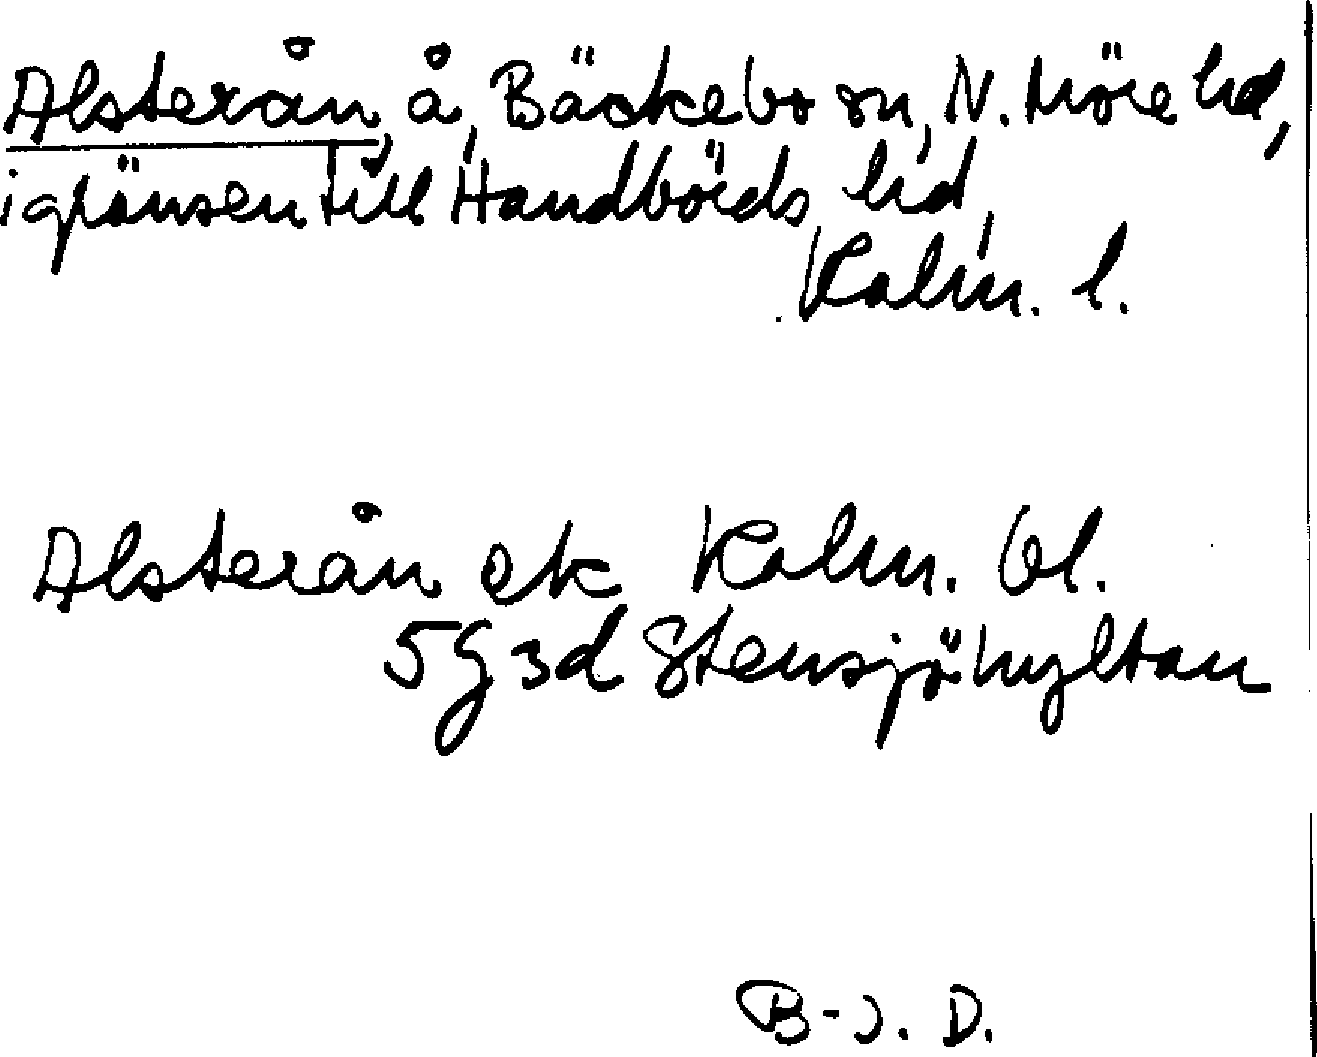 Alsterån, å, Bäckebo sn, N. Möre hd,
i gränsen till Handbörds hd,
Kalm. l.
Alsterån ek Kalm. bl.
5g3d Stensjöhyltan
B-J. D.